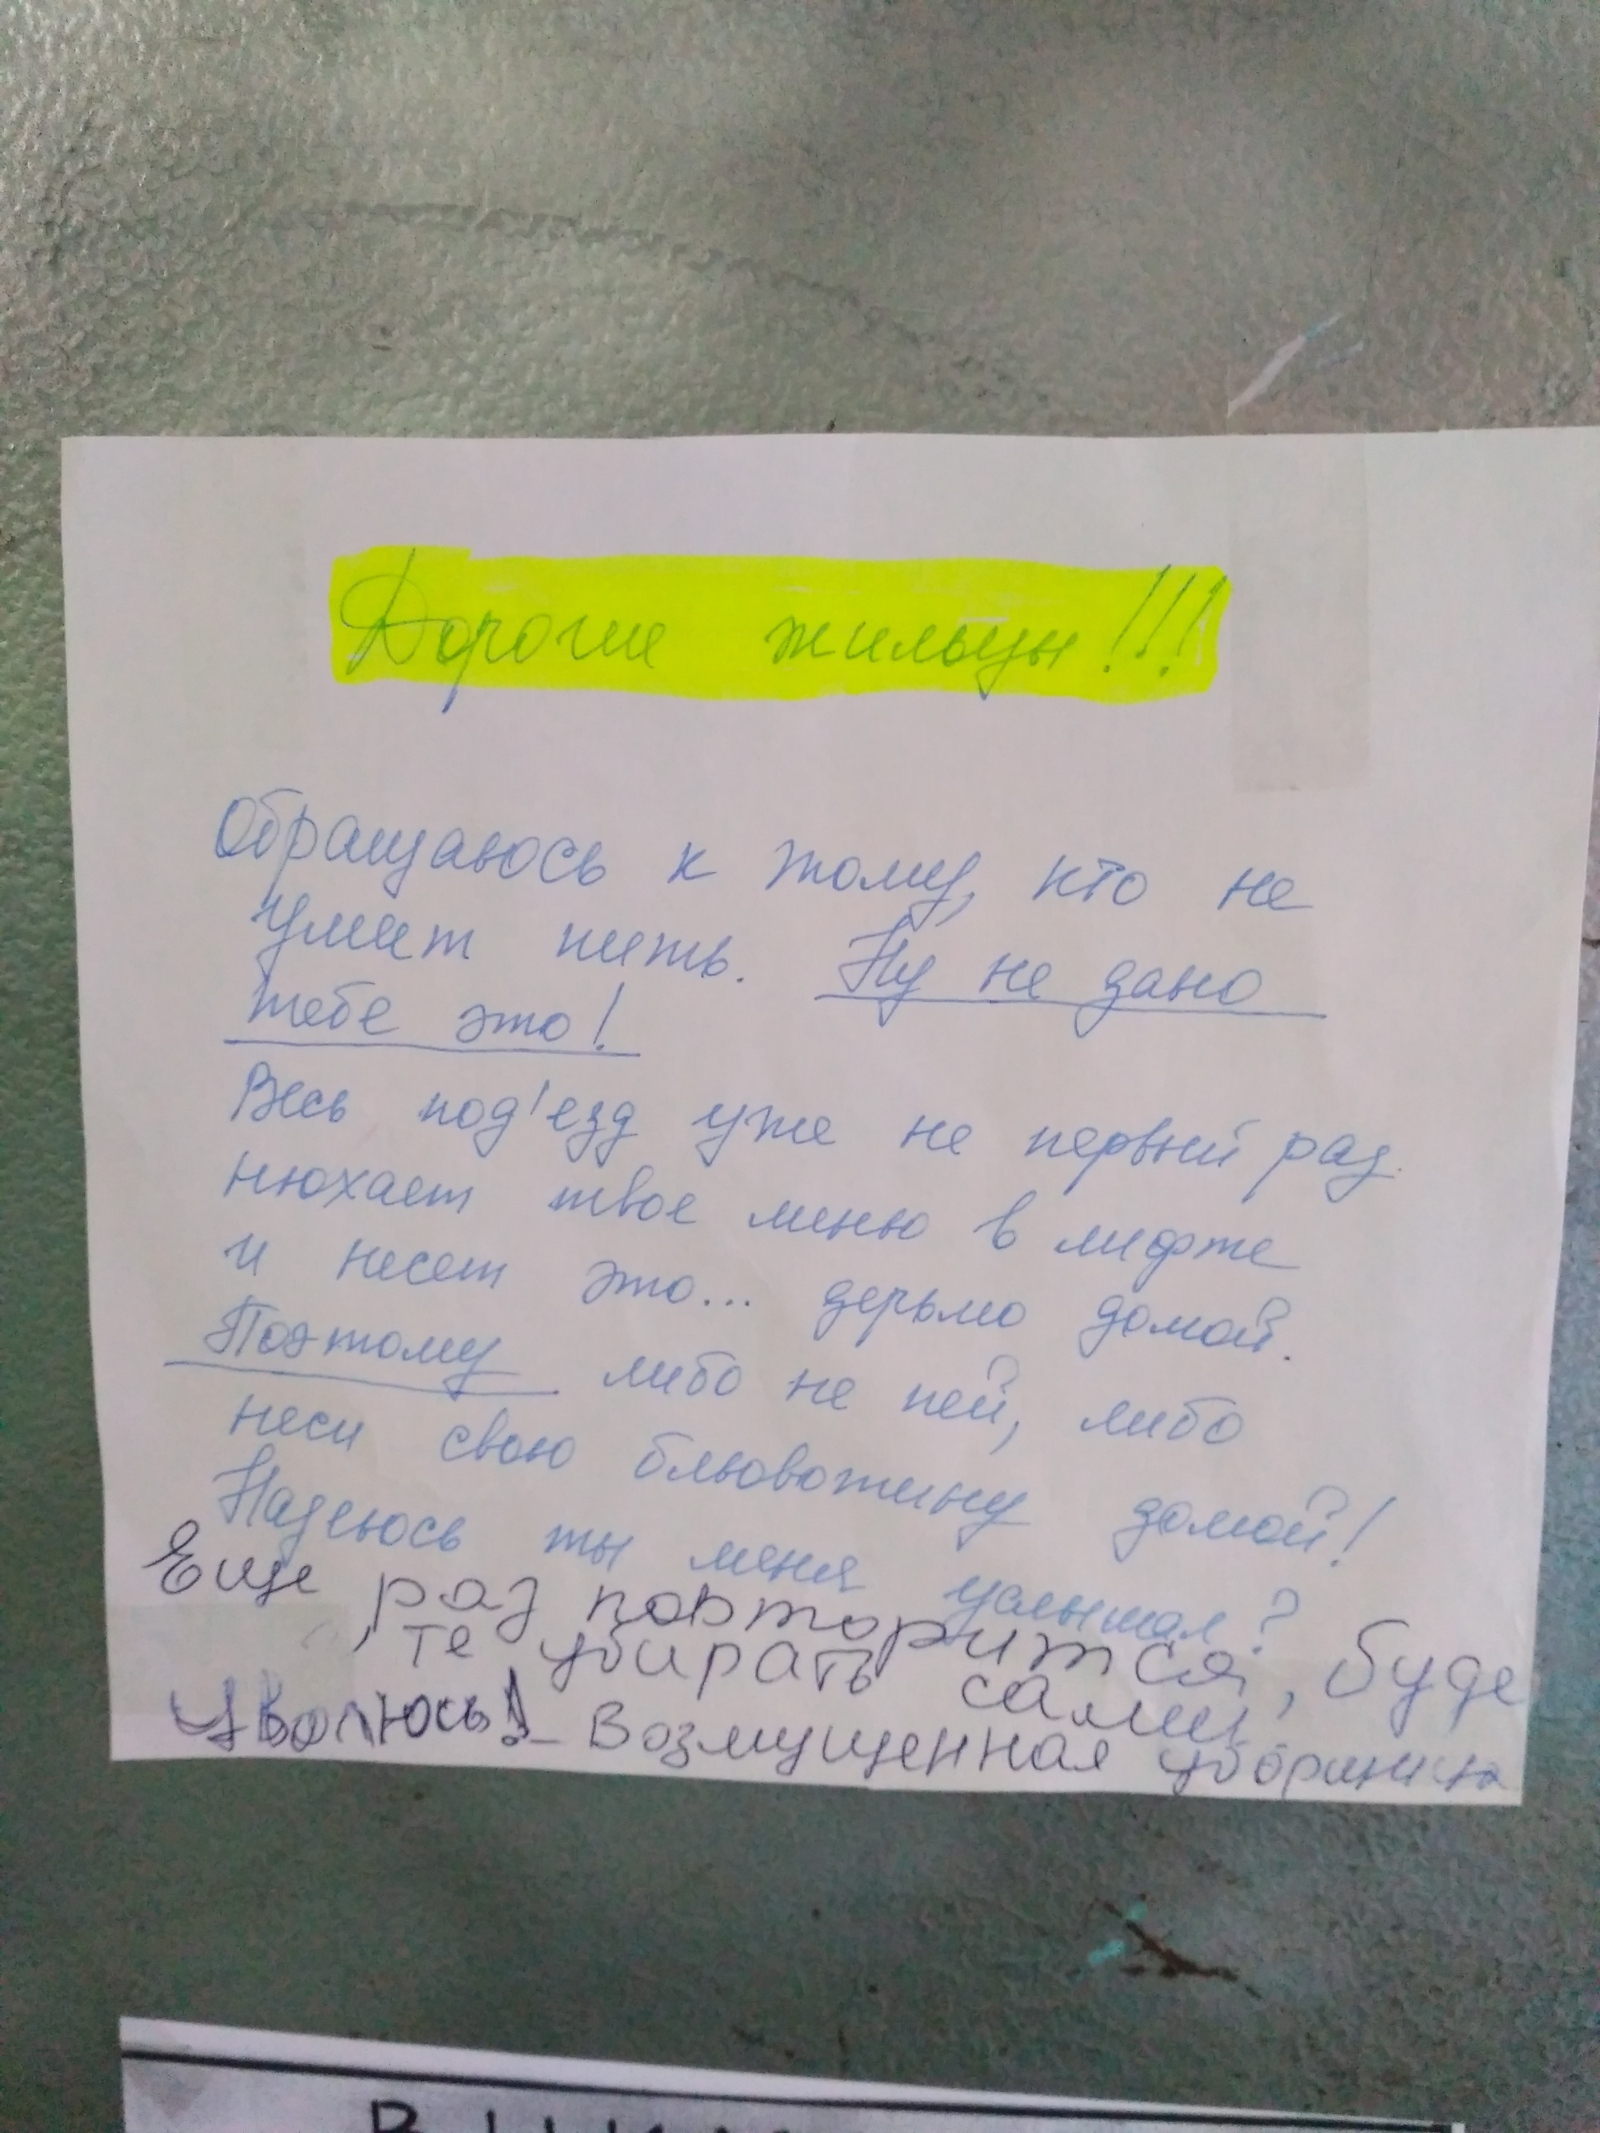 Дорогие жильцы!!!
Обращаюсь к тому, кто не
умеет пить. Ну не дано
тебе это!
Весь под'езд уже не первый раз
нюхает твое меню в лифте
и несет это... дерьмо домой.
Поэтому либо не пей, либо
неси свою блювотину домой!
Надеюсь ты меня услышал?
Еще раз повторится, буде
те убирать сами,
Уволюсь! – Возмущенная уборщица